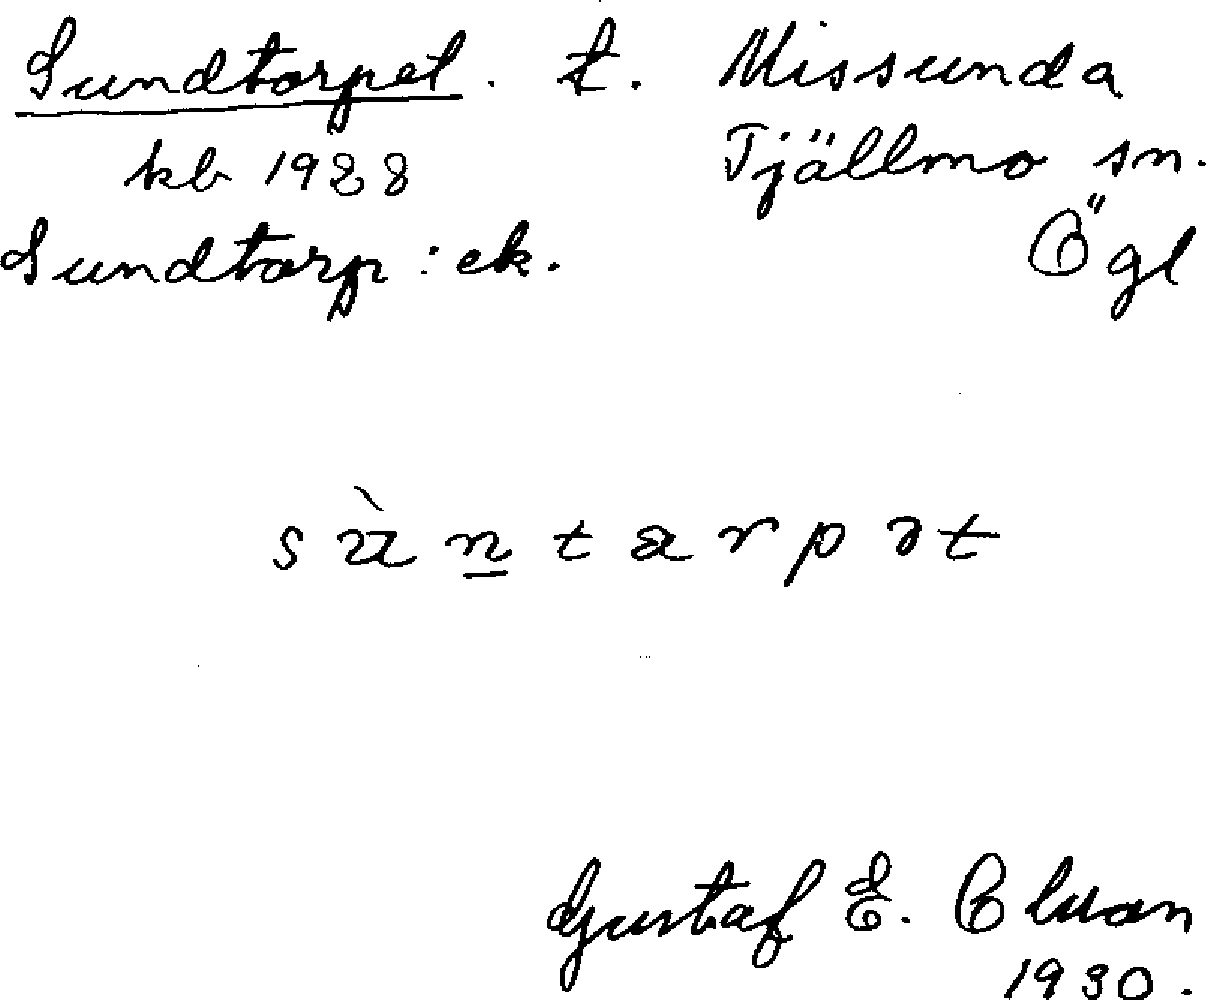 Sundtorpet. t. Missunda
kb 1928 Tjällmo sn.
Sundtorp : ek. Ögl
sùntarpət
Gustaf E. Olsson
1930.